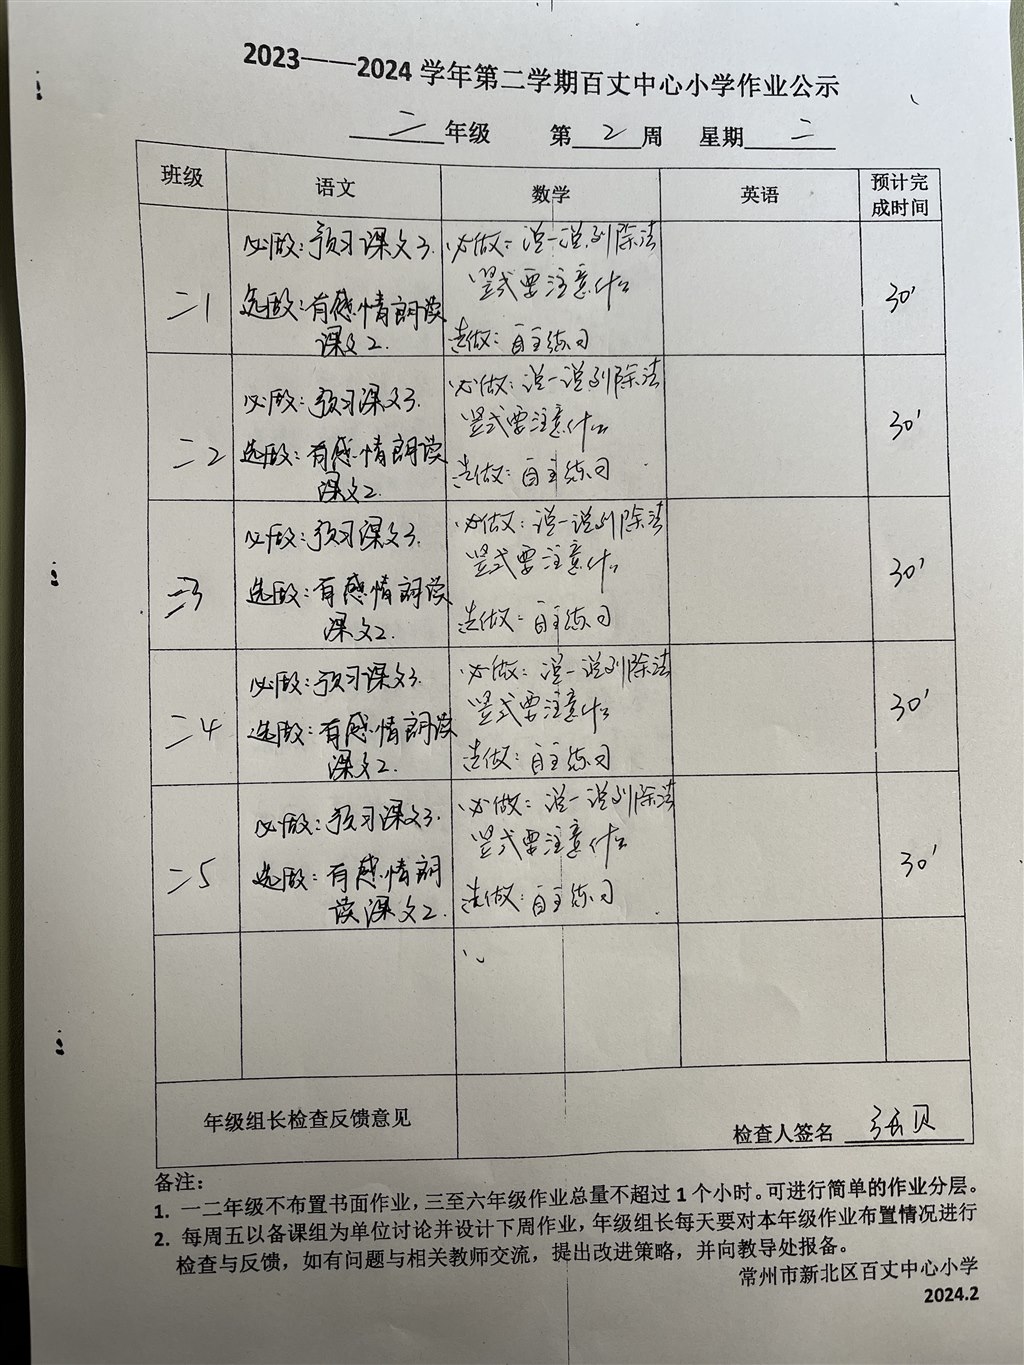 2023——2024 学年第二学期百丈中心小学作业公示
二 年级 第 2 周 星期 二
班级 语文 数学 英语 预计完
成时间
二1
必做：预习课文3.
选做：有感情朗读
课文2.
必做：说一说列除法
竖式要注意什么
选做：自主练习
30'
二2
必做：预习课文3.
选做：有感情朗读
课文2.
必做：说一说列除法
竖式要注意什么
选做：自主练习
30'
二3
必做：预习课文3.
选做：有感情朗读
课文2.
必做：说一说列除法
竖式要注意什么
选做：自主练习
30'
二4
必做：预习课文3.
选做：有感情朗读
课文2.
必做：说一说列除法
竖式要注意什么
选做：自主练习
30'
二5
必做：预习课文3.
选做：有感情朗
读课文2.
必做：说一说列除法
竖式要注意什么
选做：自主练习
30'
年级组长检查反馈意见
检查人签名 张贝
备注：
1. 一二年级不布置书面作业，三至六年级作业总量不超过 1 个小时。可进行简单的作业分层。
2. 每周五以备课组为单位讨论并设计下周作业，年级组长每天要对本年级作业布置情况进行
检查与反馈，如有问题与相关教师交流，提出改进策略，并向教导处报备。
常州市新北区百丈中心小学
2024.2